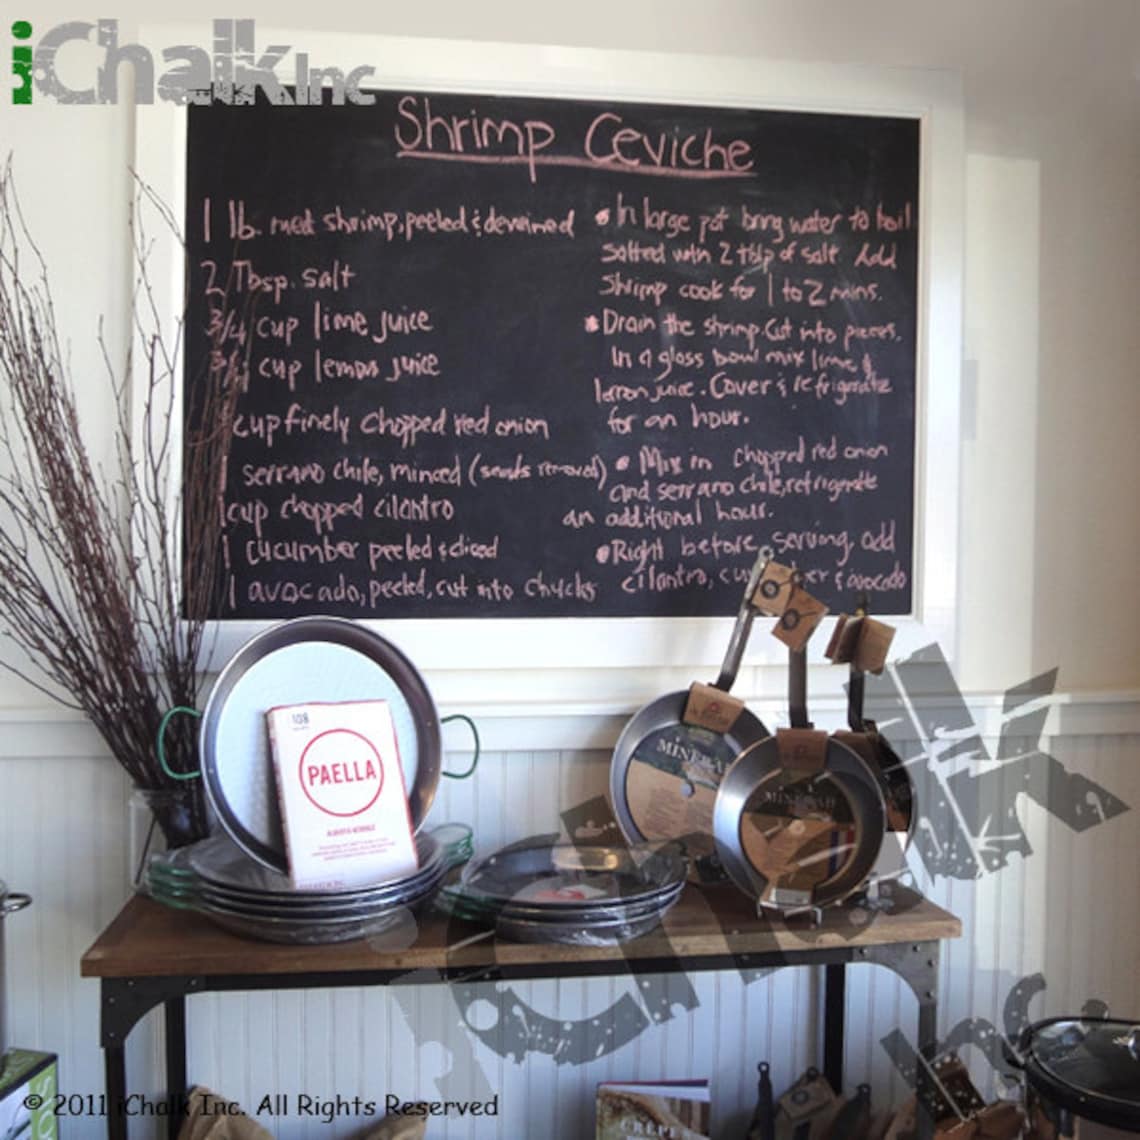 iChalk Inc
Shrimp Ceviche
1 lb. shrimp, peeled & deveined
2 Tbsp. salt
3/4 cup lime juice
3/4 cup lemon juice
1 cup finely chopped red onion
1 serrano chile, minced (seeds removed)
1 cup chopped cilantro
1 cucumber peeled & diced
1 avocado, peeled, cut into chucks
• In large pot bring water to boil
salted with 2 tblp of salt Add
Shrimp cook for 1 to 2 mins.
• Drain the shrimp. Cut into pieces.
In a glass bowl mix lime &
lemon juice. Cover & refrigerate
for an hour.
• Mix in chopped red onion
and serrano chile, refrigerate
an additional hour.
• Right before serving, add
cilantro, & avocado
108
PAELLA
MINERAL
MINERAL
iChalk Inc.
CRÊPE
© 2011 iChalk Inc. All Rights Reserved